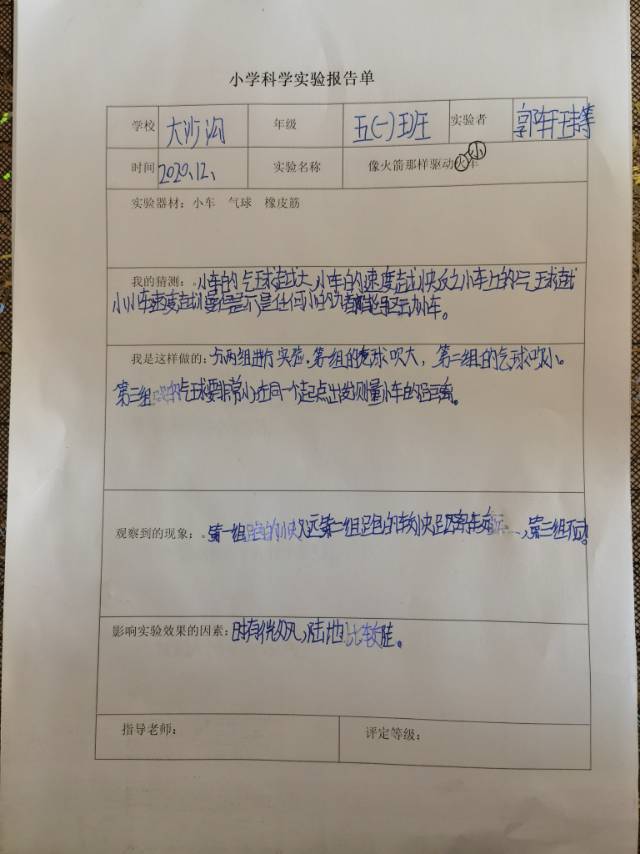 小学科学实验报告单
学校 大沙沟 年级 五(一)班 实验者 郭轩
时间 2020.12. 实验名称 像火箭那样驱动小车
实验器材：小车 气球 橡皮筋
我的猜测：小车的气球越大，小车的速度越快反之小车上的气球越
小小车速度越慢但是不是任何小的力都能够驱动小车。
我是这样做的：分两组进行实验，第一组的气球吹大，第二组的气球吹小。
第三组 气球要非常小在同一个起点出发测量小车的距离。
观察到的现象：第一组跑的 快又远第二组跑的较快距离 第三组不动
影响实验效果的因素：时有微风，陆地比较
指导老师： 评定等级：